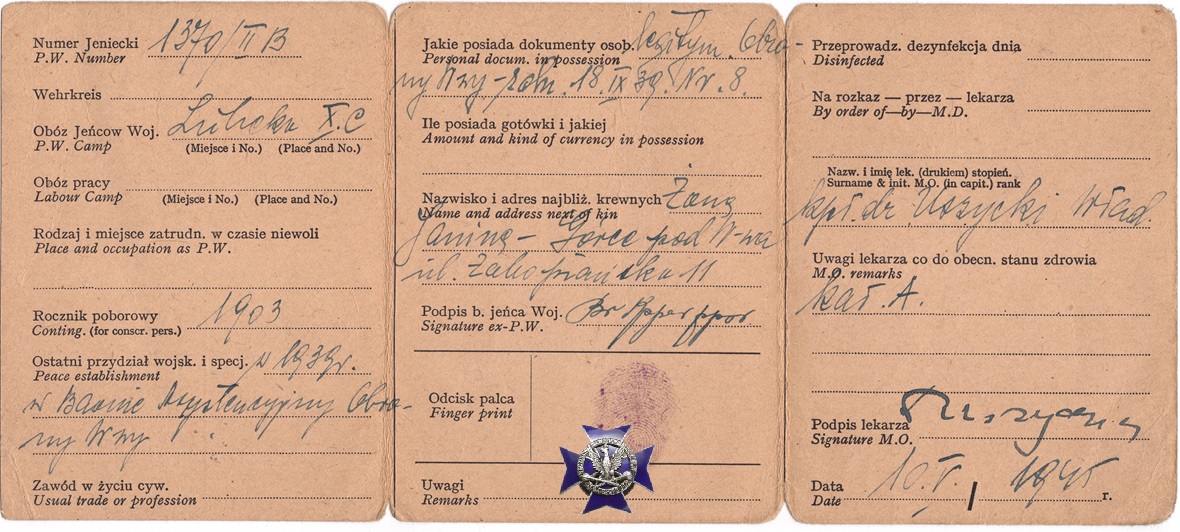 Numer Jeniecki 1370/II B
P.W. Number
Wehrkreis
Obóz Jeńcow Woj. Lubeka X.C
P.W. Camp (Miejsce i No.) (Place and No.)
Obóz pracy
Labour Camp (Miejsce i No.) (Place and No.)
Rodzaj i miejsce zatrudn. w czasie niewoli
Place and occupation as P.W.
Rocznik poborowy 1903
Conting. (for conscr. pers.)
Ostatni przydział wojsk. i specj. w 1939r.
Peace establishment
w Baonie Asystencyjny Obro-
ny Wwy
Zawód w życiu cyw.
Usual trade or profession
Jakie posiada dokumenty osob. legitym. Obro-
Personal docum. in possession
ny Wwy 18 IX 39. Nr. 8.
Ile posiada gotówki i jakiej
Amount and kind of currency in possession
Nazwisko i adres najbliż. krewnych Żona
Name and address next of kin
Janina - Górce pod W-wa
ul. Zakopiańska 11
Podpis b. jeńca Woj. ppor
Signature ex-P.W.
Odcisk palca
Finger print
Uwagi
Remarks
Przeprowadz. dezynfekcja dnia
Disinfected
Na rozkaz — przez — lekarza
By order of—by—M.D.
Nazw. i imię lek. (drukiem) stopień.
Surname & init. M.O. (in capit.) rank
kpt. dr Uszycki Wład.
Uwagi lekarza co do obecn. stanu zdrowia
M.O. remarks
kat. A.
Podpis lekarza
Signature M.O.
Data 10.V. 1945 r.
Date